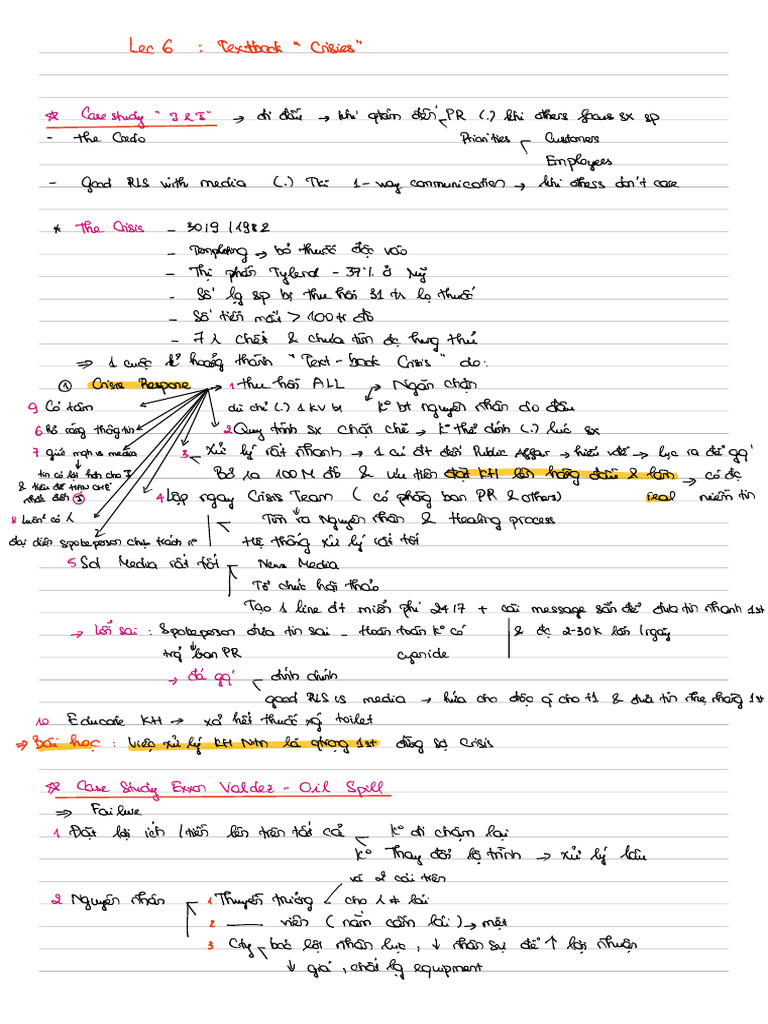 Lec 6 : Textbook " Crisies"
☆ Case study " J & J" → đi đầu → khi quan đến PR (.) khi others focus sx sp
- the Credo Priorities Customers
Employees
- Good RLS with media (.) TK 1-way communication → khi others don't care
* The Crisis - 30/9/1982
- → bỏ thuốc độc vào
- Thị phần Tylenol - 37% ở Mỹ
- Số lg sp bị thu hồi 31 tr lọ thuốc
- Số tiền mất > 100tr đô
- 7 λ chết & chưa tìm đc hung thủ
⇒ 1 cuộc k² hoảng thành "Text-book Crisis" do:
① Crisis Respone 1 thu hồi ALL Ngăn chặn
9 Có tâm dù chỉ (.) 1 KV bt K° bt nguyên nhân do đâu
6 Rõ ràng thông tin 2 Quy trình sx chặt chẽ → K° thể dính (.) lúc sx
7 giữ mqh vs media 3 Xử lý rất nhanh → 1 cú đt đến Public Affair → hiểu vđề → lục ra để gq'
tin có lợi hơn cho J Bỏ ra 100M đô & ưu tiên đặt KH lên hàng đầu & làm → có đc
4 Lập ngay Crisis Team ( có phòng ban PR & others) real niềm tin
8 luôn có 1 Tìm ra Nguyên nhân & Healing process
đại diện spokeperson chịu trách n° Hệ thống xử lý rất tốt
5 Sd Media rất tốt News Media
Tổ chức hội thảo
Tạo 1 line đt miễn phí 24/7 + cái message sẵn để đưa tin nhanh 1st
→ Lỗi sai : Spokeperson đưa tin sai - Hoàn toàn K° có & đc 2-30K lần /ngày
ban PR cyanide
→ đã gq' đính chính
good RLS vs media → hứa cho độc q cho t1 & đưa tin nhẹ nhàng 1st
10 Educate KH → xả hết thuốc toilet
⇒ Bài học : Việc xử lý KH Ntn là qtrọng 1st đừng sợ Crisis
☆ Case Study Exxon Valdez - Oil Spill
⇒ Failure
1 Đặt lợi ích /tiền lên trên tất cả K° đi chậm lại
K° Thay đổi lộ trình → xử lý lâu
vì 2 cái trên
2 Nguyên nhân 1 Thuyền trưởng cho λ ≠ lái
2 —— viên ( nằm cầm lái) → mệt
3 Cty bóc lột nhân lực, ↓ nhân sự để ↑ lợi nhuận
↓ giá , chất lg equipment